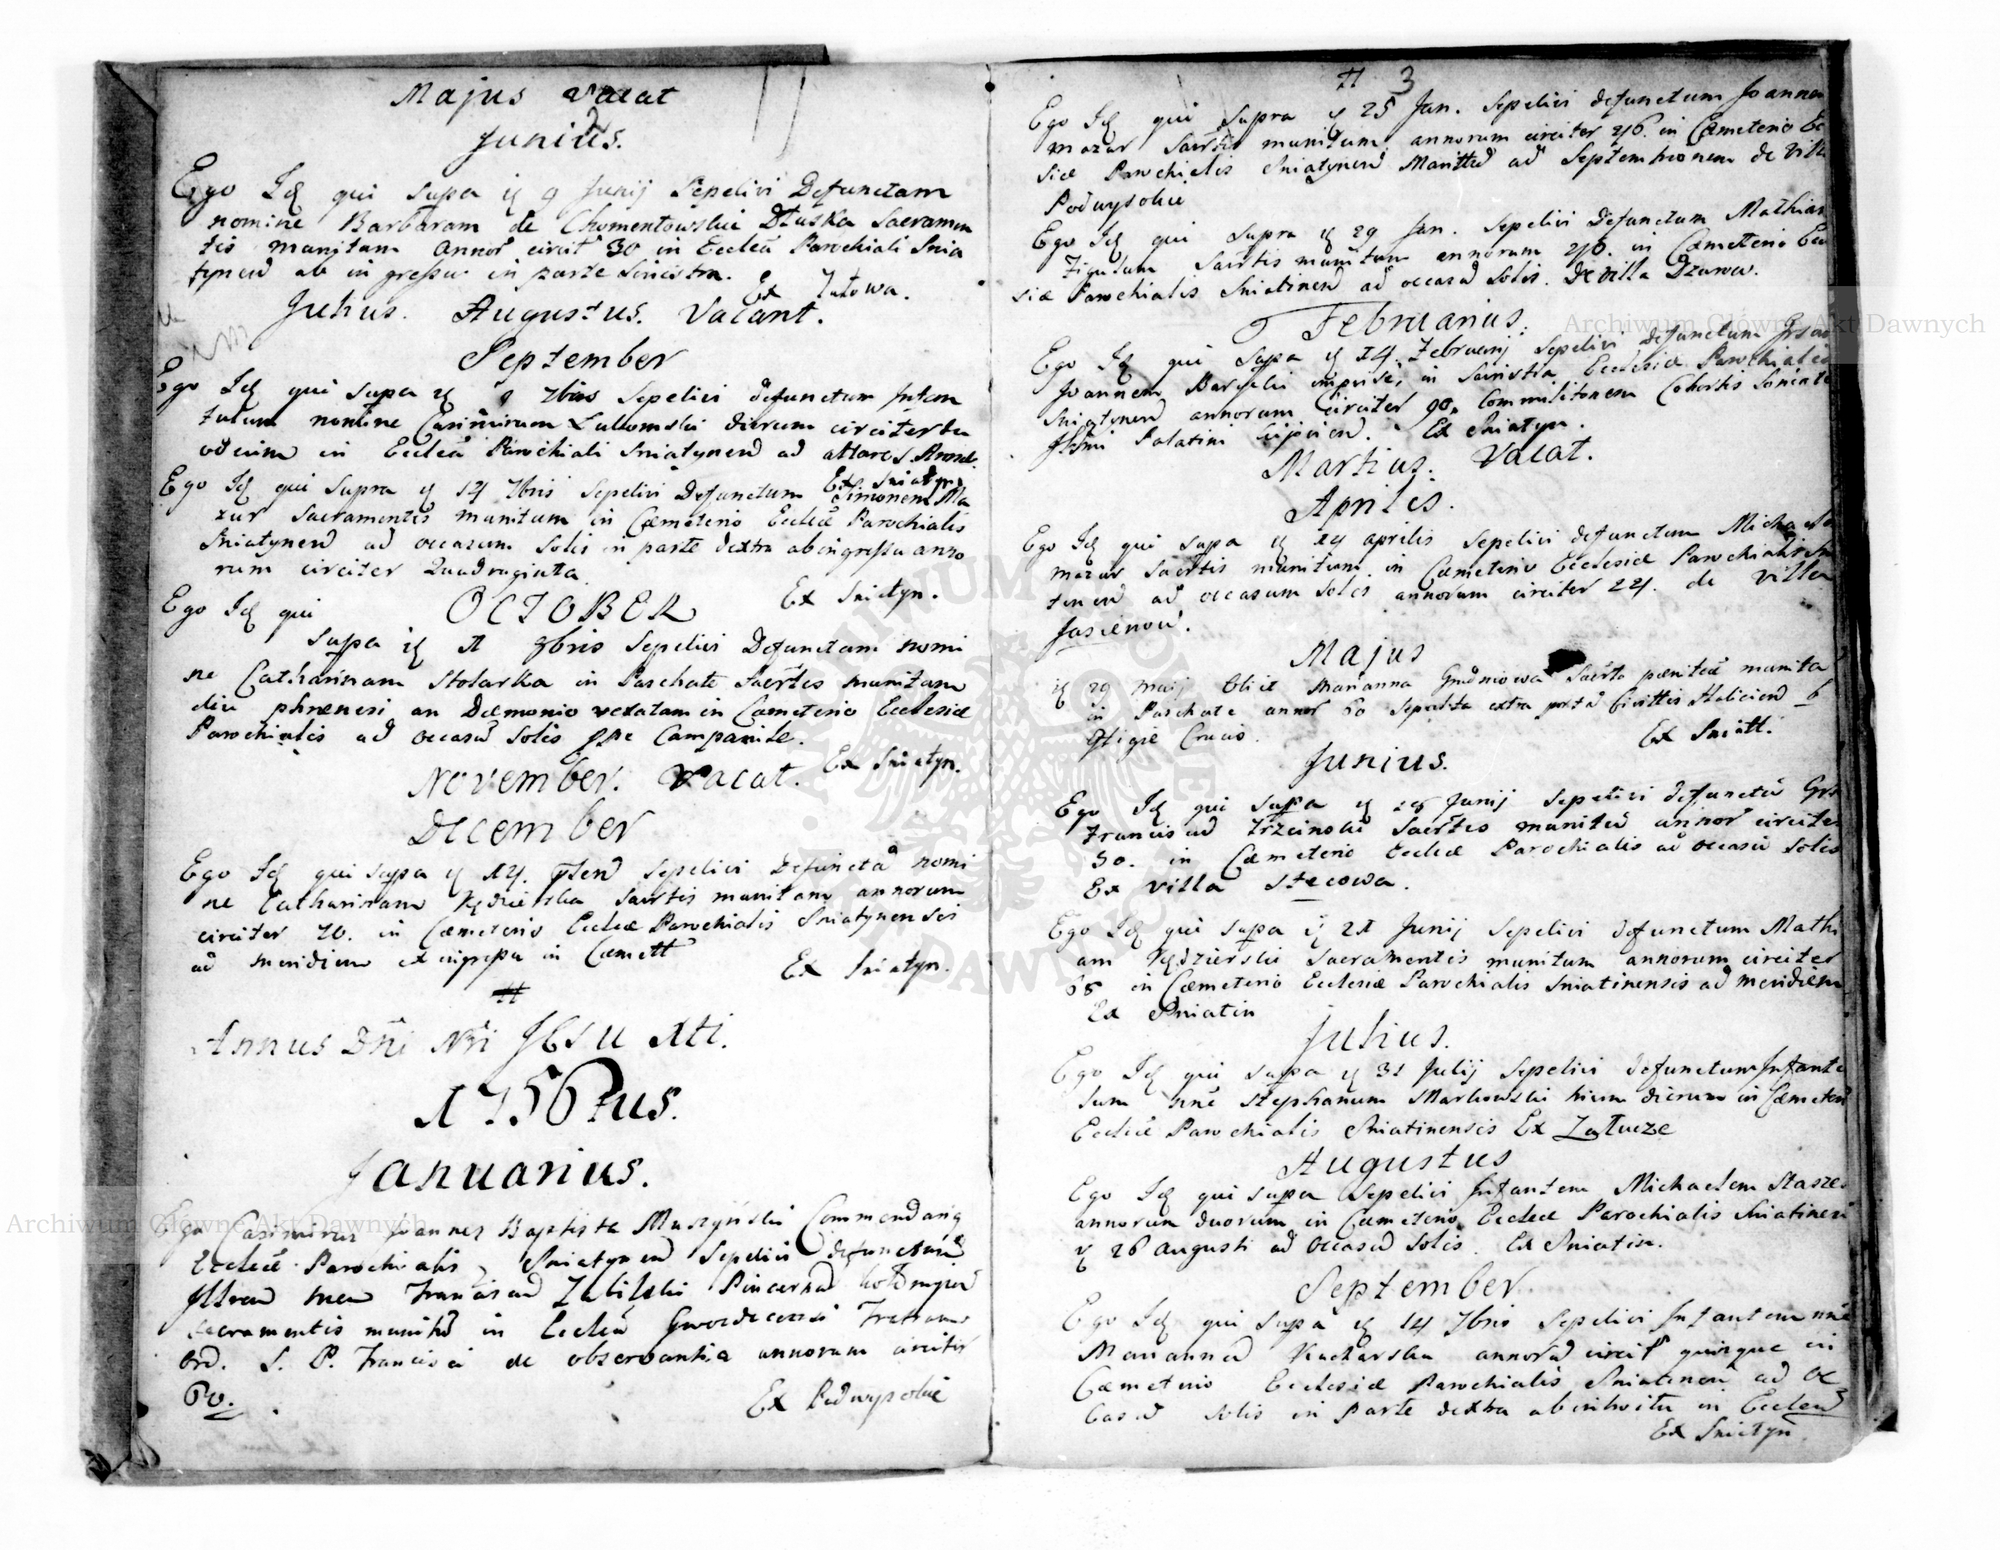 Majus vacat
Junius.
Ego Idq qui supa iq 9 Junij Sepelivi Defunctam
nomine Barbaram de Chomentowskie Dłuska Sacramen
tis munitam Annor circit 30 in Eccleã Parochiali Snia
tynen ab in gressu in parte Sinistra.
Ex Tutowa.
Julius. Augustus. Vacant.
September
Ego Idq qui supa iq 9 7bris Sepelivi defunctum Infan
tulum nomine Casimirum Lukomski dierum circiter
in Eccleã Parochiali Sniatynen ad altare S.
Ex Sniatyn
Ego Idq qui supra iq 14 7bris Sepelivi Defunctum Simonem Ma
zur Sacramentis munitum in Cæmeterio Eccleæ Parochialis
Sniatynen ad occasum Solis in parte dextra ab ingressu anno
rum circiter Quadraginta
Ex Sniatyn.
OCTOBER
Ego Idq qui
supa iq 11 8bris Sepelivi Defunctam nomi
ne Catharinam Stolarka in Paschate Sacrtis munitam
diu phrenesi an Dæmonio vexatam in Cæmeterio Ecclesiæ
Parochialis ad occasũ Solis ppe Campanile.
Ex Sniatyn.
November. Vacat.
December
Ego Idq qui supa iq 14. Sepelivi Defunctã nomi
ne Catharinam Kędzierska Sacrtis munitam annorum
circiter 70. in Cæmeterio Eccleæ Parochialis Sniatynensis
ad meridiem ex ingressu in Cæmett
Ex Sniatyn.
Annus Dñi Nri JESU Xti.
1756tus.
Januarius.
Ego Casimirus Joannes Baptista Muszyński Commendarių
Eccleæ Parochialis Sniatynen Sepelivi defunctum
Illrem Franciscũ Zabilski Pincernã
Sacramentis munitũ in Eccleã Gwozdecensi Fratrum
Ord. S. P. Francisci de observantia annorum circiter
60.
Ex Podwysokie
3
Ego Idq qui supra iq 25 Jan. Sepelivi defunctum Joannem
Mazur Sacrtis munitum, annorum circiter 26. in Cæmeterio Ec
siæ Parochialis Sniatynen ad Septemtrionem de Villa
Podwysokie
Ego Idq qui supra iq 29 Jan. Sepelivi Defunctum Mathiam
Figulum Sacrtis munitum annorum 26. in Cæmeterio Eccle
siæ Parochialis Sniatinen ad occasũ Solis. De villa Dzurow.
Februarius.
Ego Idq qui supa iq 14. Februarij Sepelivi defunctum
Joannem in Ecclesiæ Parochialis
Sniatynen annorum circiter 90. Commilitonem Cohortis
Illmi Palatini Kijovien. Ex Sniatyn.
Martius. Vacat.
Aprilis.
Ego Idq qui supa iq 14 aprilis Sepelivi defunctum Michaelem
mazur Sacrtis munitum in Cæmeterio Ecclesiæ Parochialis Snia
tinen ad occasum Solis annorum circiter 24. de Villa
Jasienow.
Majus
iq 29 maij Obiit Marianna Grudniowa Sacrto pænitæ munita
in Paschate annor 60 Sepulta extra portã Civittis Halicien
Effigie Crucis.
Ex Sniatt.
Junius.
Ego Idq qui supa iq 18 Junij Sepelivi defunctũ
Franciscũ Trzcinski Sacrtis munitũ annor circiter
30. in Cæmeterio Eccleæ Parochialis ad occasũ Solis
Ex Villa Stecowa.
Ego Idq qui supa iq 21 Junij Sepelivi defunctum Mathi
am Kędzierski Sacramentis munitum annorum circiter
68 in Cæmeterio Ecclesiæ Parochialis Sniatinensis ad meridiem
Ex Sniatin
Julius.
Ego Idq qui supa iq 31 Julij Sepelivi defunctum Infantu
lum nne Stephanum Markowski dierum in Cæmeterio
Eccleæ Parochialis Sniatinensis Ex Załucze
Augustus
Ego Idq qui supa Sepelivi Infantem Michaelem
annorum duorum in Cæmeterio Eccleæ Parochialis Sniatinen
iq 26 Augusti ad occasũ Solis. Ex Sniatin.
September
Ego Idq qui supa iq 14 7bris Sepelivi Infantem nne
Mariannã Kucharska annorũ circit quinque in
Cæmeterio Ecclesiæ Parochialis Sniatinen ad Oc
casũ Solis in Parte dextra ab introitu in Eccleã
Ex Sniatyn.
Archiwum Główne Akt Dawnych
Archiwum Główne Akt Dawnych
ARCHIWUM GŁÓWNE AKT DAWNYCH